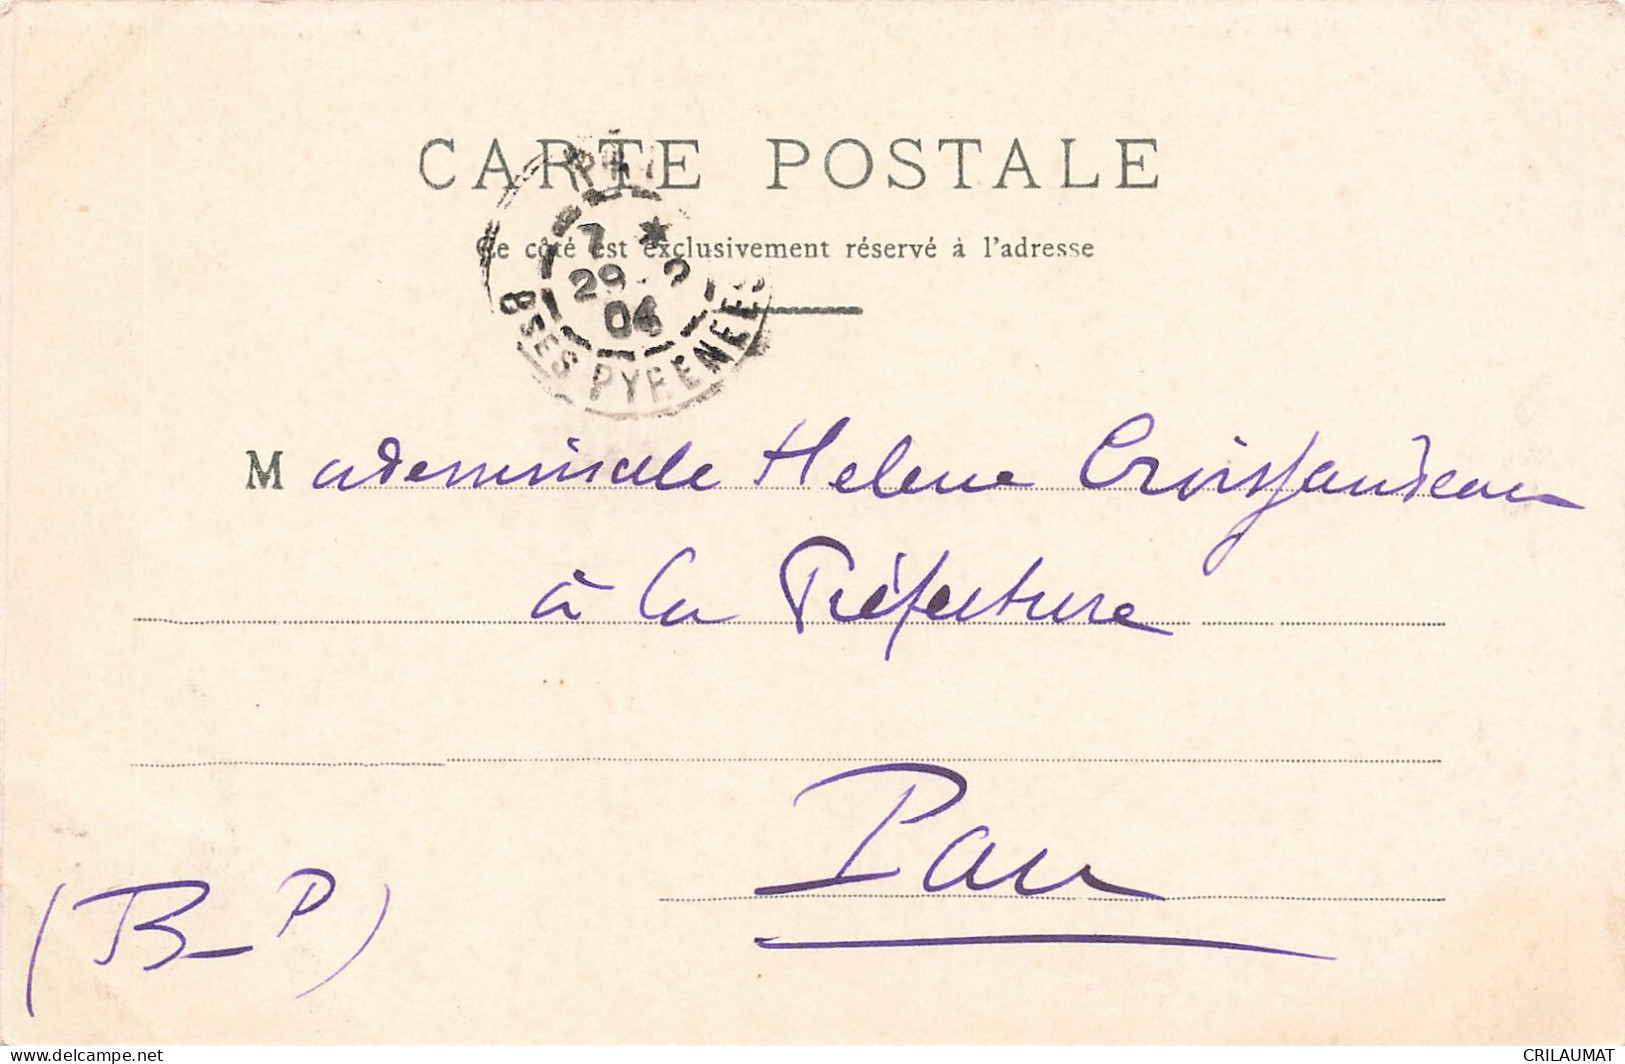 CARTE POSTALE
Ce côté est exclusivement réservé à l'adresse
7 *
29
04
BSES PYRENEES
Mademoiselle Helene Croissandeau
à la Préfecture
Pau
(B-P)
www.delcampe.net
CRILAUMAT